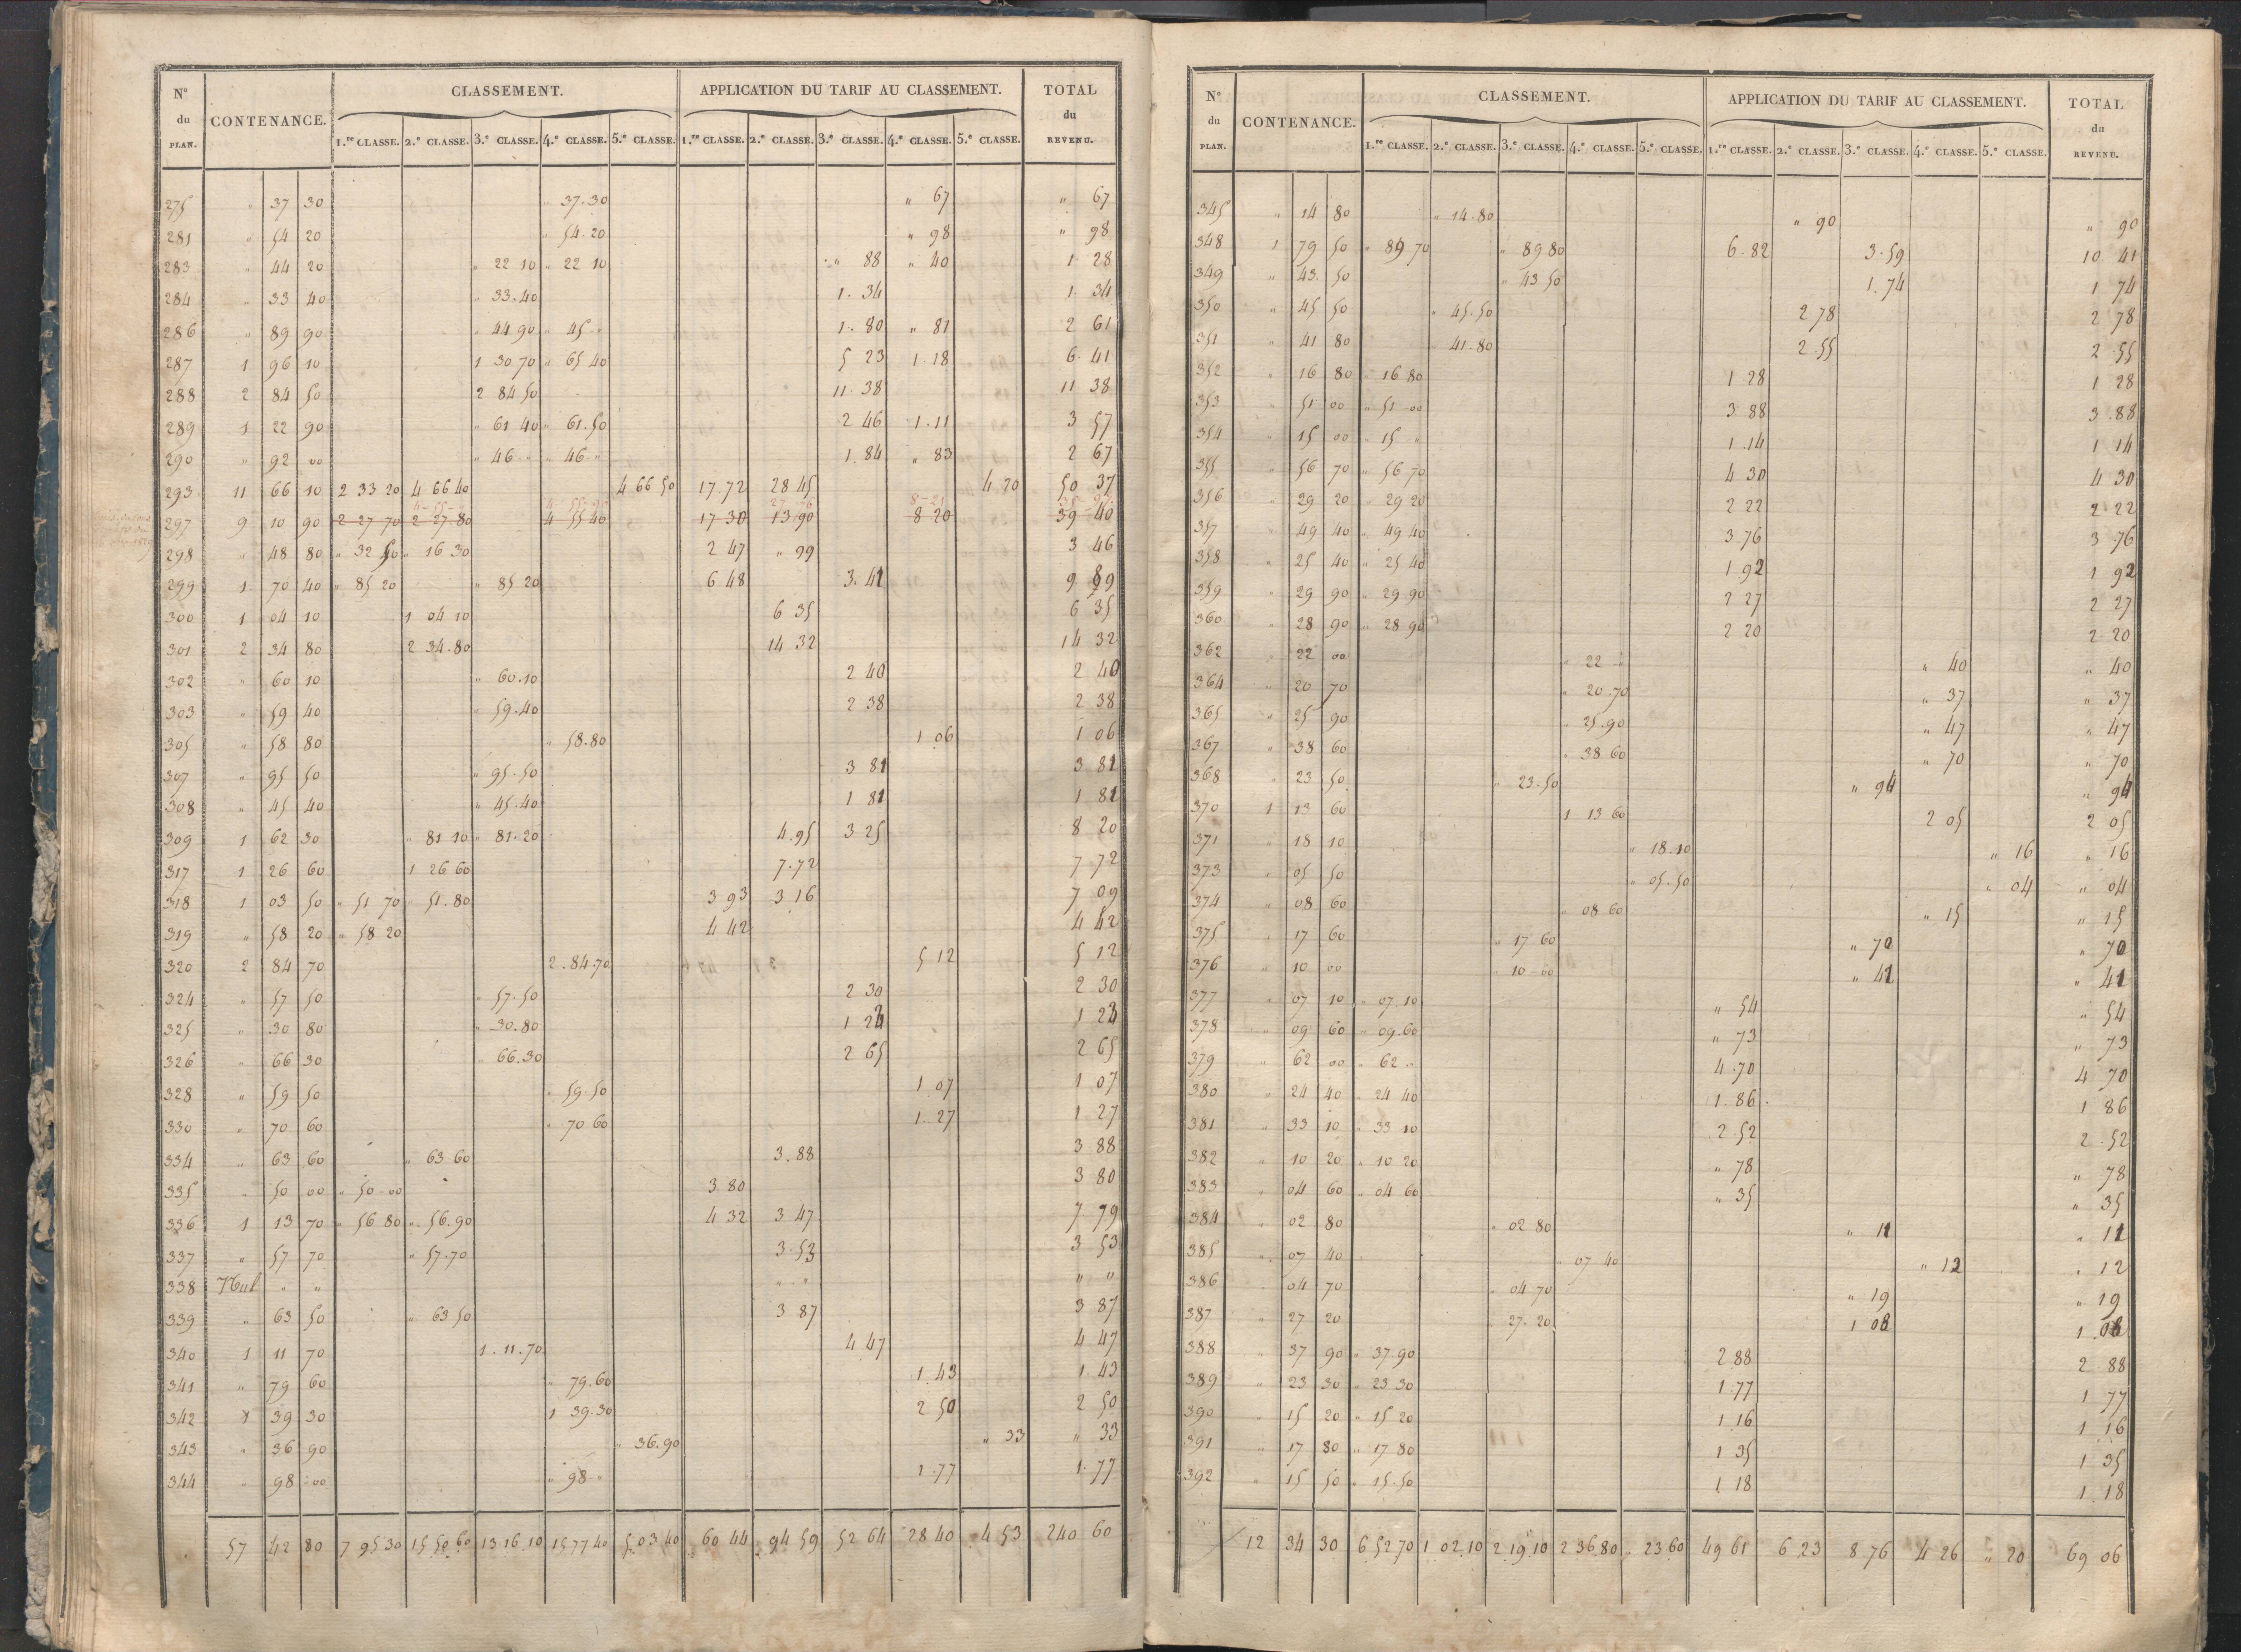 N.os du PLAN. CONTENANCE. CLASSEMENT. APPLICATION DU TARIF AU CLASSEMENT. TOTAL du REVENU.
1.re CLASSE. 2.e CLASSE. 3.e CLASSE. 4.e CLASSE. 5.e CLASSE. 1.re CLASSE. 2.e CLASSE. 3.e CLASSE. 4.e CLASSE. 5.e CLASSE.
275 " 37 30 " 37.30 " 67 " 67
281 " 54 20 " 54.20 " 98 " 98
283 " 44 20 " 22 10 " 22 10 " 88 " 40 1 28
284 " 33 40 " 33.40 1.34 1.34
286 " 89 90 " 44.90 " 45 " 1.80 " 81 2 61
287 1 96 10 1 30 70 " 65 40 5 23 1.18 6.41
288 2 84 50 2 84 50 11.38 11 38
289 1 22 90 " 61 40 " 61.50 2 46 1.11 3 57
290 " 92 00 " 46 " " 46 " 1.84 " 83 2 67
293 11 66 10 2 33 20 4 66 40 4 66 50 17.72 28 45 4 20 50 37
297 9 10 90 2 27 70 2 27 80 4 55 40 17 30 13 90 8 20 39 40
298 " 48 80 " 32 50 " 16 30 2 47 " 99 3 46
299 1 70 40 " 85 20 " 85 20 6 48 3.41 9 89
300 1 04 10 1 04 10 6 35 6 35
301 2 34 80 2 34.80 14 32 14 32
302 " 60 10 " 60.10 2 40 2 40
303 " 59 40 " 59.40 2 38 2 38
305 " 58 80 " 58.80 1 06 1 06
307 " 95 50 " 95.50 3 82 3 82
308 " 45 40 " 45.40 1 82 1 82
309 1 62 30 " 81 10 " 81.20 4.95 3 25 8 20
317 1 26 60 1 26 60 7.72 7 72
318 1 03 50 " 51 70 " 51.80 3 93 3 16 7 09
319 " 58 20 " 58 20 4 42 4 42
320 2 84 70 2.84.70 5 12 5 12
324 " 57 50 " 57.50 2 30 2 30
325 " 30 80 " 30.80 1 23 1 23
326 " 66 30 " 66.30 2 65 2 65
328 " 59 50 " 59.50 1 07 1 07
330 " 70 60 " 70 60 1.27 1 27
334 " 63 60 " 63 60 3.88 3 88
335 " 50 00 " 50-00 3 80 3 80
336 1 13 70 " 56 80 " 56.90 4 32 3 47 7 79
337 " 57 70 " 57.70 3.53 3 53
338 Nul " " " " " "
339 " 63 50 " 63 50 3 87 3 87
340 1 11 70 1.11.70 4 47 4 47
341 " 79 60 " 79.60 1.43 1.43
342 1 39 30 1 39.30 2 50 2 50
343 " 36 90 " 36.90 " 33 " 33
344 " 98 00 " 98 " 1.77 1.77
57 42 80 7 95 30 15 50 60 13 16 10 15 77 40 5 03 40 60 44 94 59 52 64 28 40 4 53 240 60
N.os du PLAN. CONTENANCE. CLASSEMENT. APPLICATION DU TARIF AU CLASSEMENT. TOTAL du REVENU.
1.re CLASSE. 2.e CLASSE. 3.e CLASSE. 4.e CLASSE. 5.e CLASSE. 1.re CLASSE. 2.e CLASSE. 3.e CLASSE. 4.e CLASSE. 5.e CLASSE.
345 " 14 80 " 14.80 " 90 " 90
348 1 79 50 " 89 70 " 89.80 6.82 3.59 10 41
349 " 43 50 " 43 50 1.74 1 74
350 " 45 50 " 45.50 2 78 2 78
351 " 41 80 " 41.80 2.55 2 55
352 " 16 80 " 16 80 1 28 1 28
353 " 51 00 " 51 00 3 88 3.88
354 " 15 00 " 15 " 1 14 1 14
355 " 56 70 " 56 70 4 30 4 30
356 " 29 20 " 29 20 2 22 2 22
357 " 49 40 " 49 40 3.76 3.76
358 " 25 40 " 25 40 1.92 1 92
359 " 29 90 " 29 90 2 27 2 27
360 " 28 90 " 28 90 2 20 2 20
362 " 22 00 " 22 " " 40 " 40
364 " 20 70 " 20.70 " 37 " 37
365 " 25 90 " 25.90 " 47 " 47
367 " 38 60 " 38 60 " 70 " 70
368 " 23 50 " 23.50 " 94 " 94
370 1 13 60 1 13 60 2 05 2 05
371 " 18 10 " 18.10 " 16 " 16
373 " 05 50 " 05.50 " 04 " 04
374 " 08 60 " 08 60 " 15 " 15
375 " 17 60 " 17 60 " 70 " 70
376 " 10 00 " 10-00 " 41 " 41
377 " 07 10 " 07.10 " 54 " 54
378 " 09 60 " 09.60 " 73 " 73
379 " 62 00 " 62 " 4.70 4 70
380 " 24 40 " 24 40 1.86 1 86
381 " 33 10 " 33 10 2.52 2.52
382 " 10 20 " 10 20 " 78 " 78
383 " 04 60 " 04 60 " 35 " 35
384 " 02 80 " 02 80 " 11 " 11
385 " 07 40 " 07 40 " 12 " 12
386 " 04 70 " 04 70 " 19 " 19
387 " 27 20 " 27.20 1 08 1 08
388 " 37 90 " 37.90 2 88 2 88
389 " 23 30 " 23 30 1.77 1 77
390 " 15 20 " 15 20 1 16 1 16
391 " 17 80 " 17 80 1 35 1 35
392 " 15 50 " 15.50 1 18 1 18
12 34 30 6 52 70 1 02 10 2 19 10 2 36 80 " 23 60 49 61 6 23 8 76 4 26 " 20 69 06